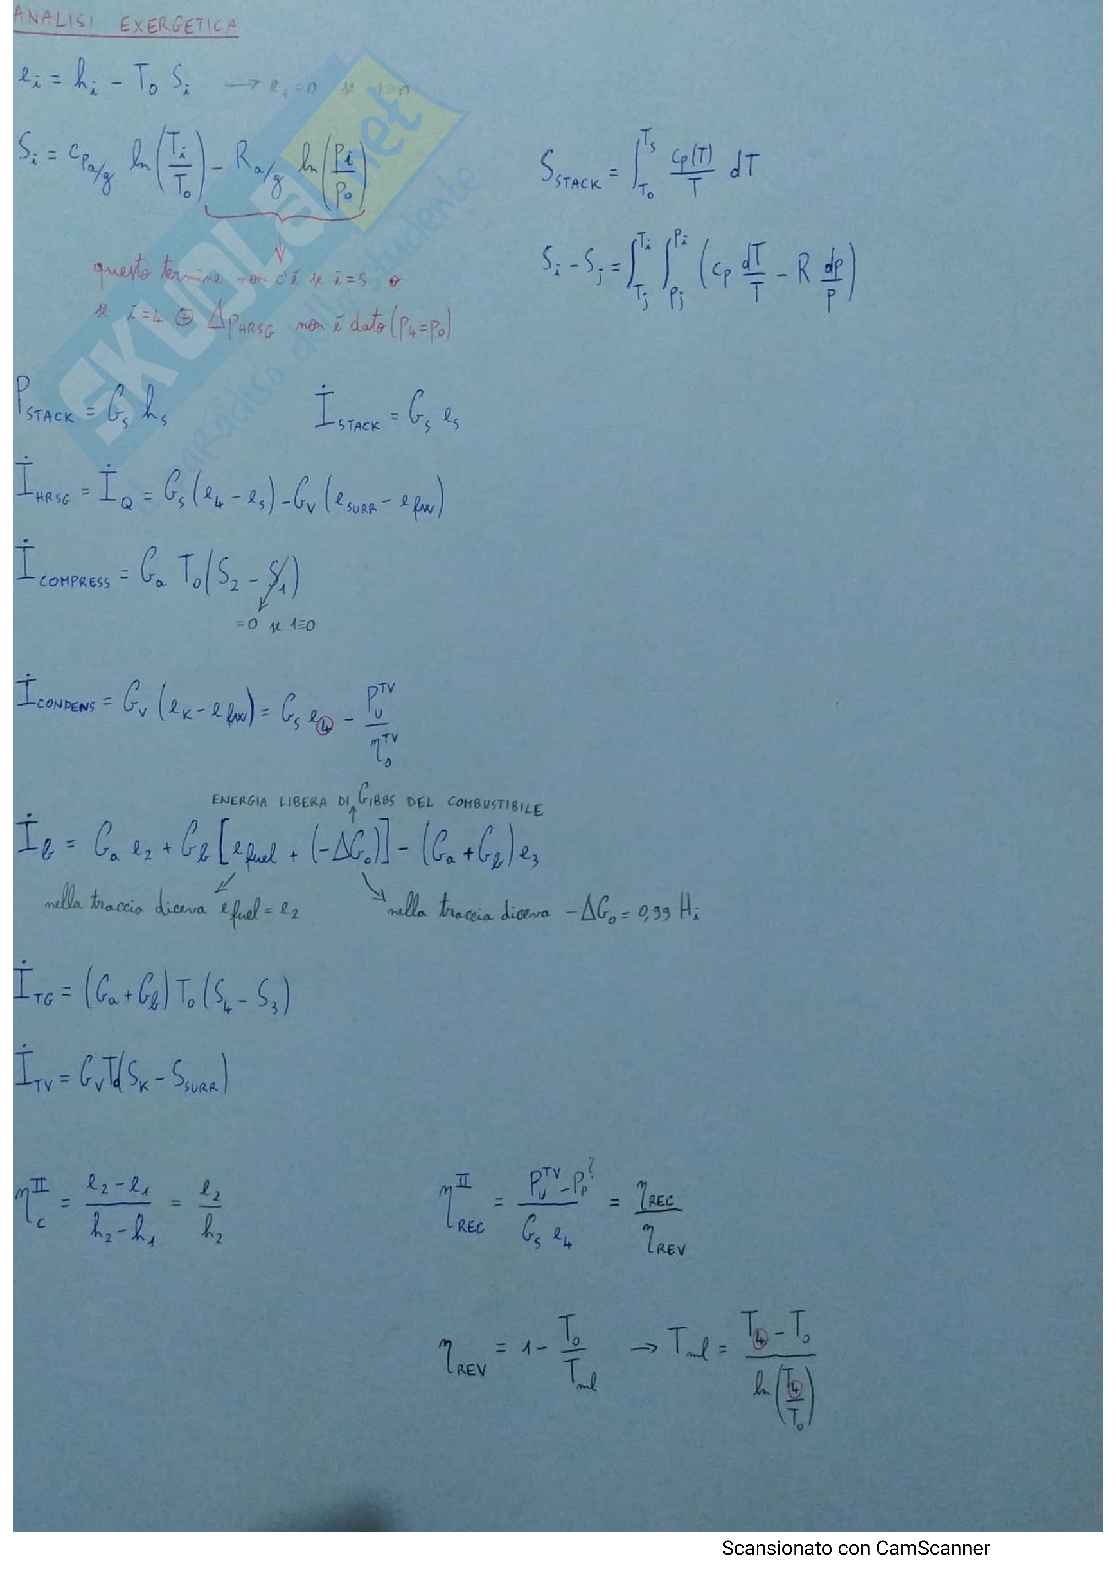 ANALISI EXERGETICA
e_i = h_i - T_0 S_i → e_1 = 0 se 1≡0
S_i = c_{p a/g} ln(T_i/T_0) - R_{a/g} ln(p_i/p_0)
S_STACK = ∫_{T_0}^{T_s} c_p(T)/T dT
questo termine non c'è se i=s o
se i=4 ⊕ Δp_HRSG non è dato (p_4=p_0)
S_i - S_j = ∫_{T_j}^{T_i} ∫_{p_j}^{p_i} (c_p dT/T - R dp/p)
P_STACK = G_s h_s
İ_STACK = G_s e_s
İ_HRSG = İ_Q = G_s (e_4 - e_s) - G_v (e_SURR - e_fw)
İ_COMPRESS = G_a T_0 (S_2 - S_1)
=0 se 1≡0
İ_CONDENS = G_v (e_K - e_fw) = G_s e_4 - P_U^TV/η_0^TV
ENERGIA LIBERA DI GIBBS DEL COMBUSTIBILE
İ_b = G_a e_2 + G_b [e_fuel + (-ΔG_0)] - (G_a + G_b) e_3
nella traccia diceva e_fuel = e_2
nella traccia diceva -ΔG_0 = 0,99 H_i
İ_TG = (G_a + G_b) T_0 (S_4 - S_3)
İ_TV = G_v T_0 (S_K - S_SURR)
η_c^II = (e_2 - e_1)/(h_2 - h_1) = e_2/h_2
η_REC^II = (P_U^TV - P_p^?)/(G_s e_4) = η_REC/η_REV
η_REV = 1 - T_0/T_ml → T_ml = (T_4 - T_0)/ln(T_4/T_0)
SKUOLA.net
Scansionato con CamScanner